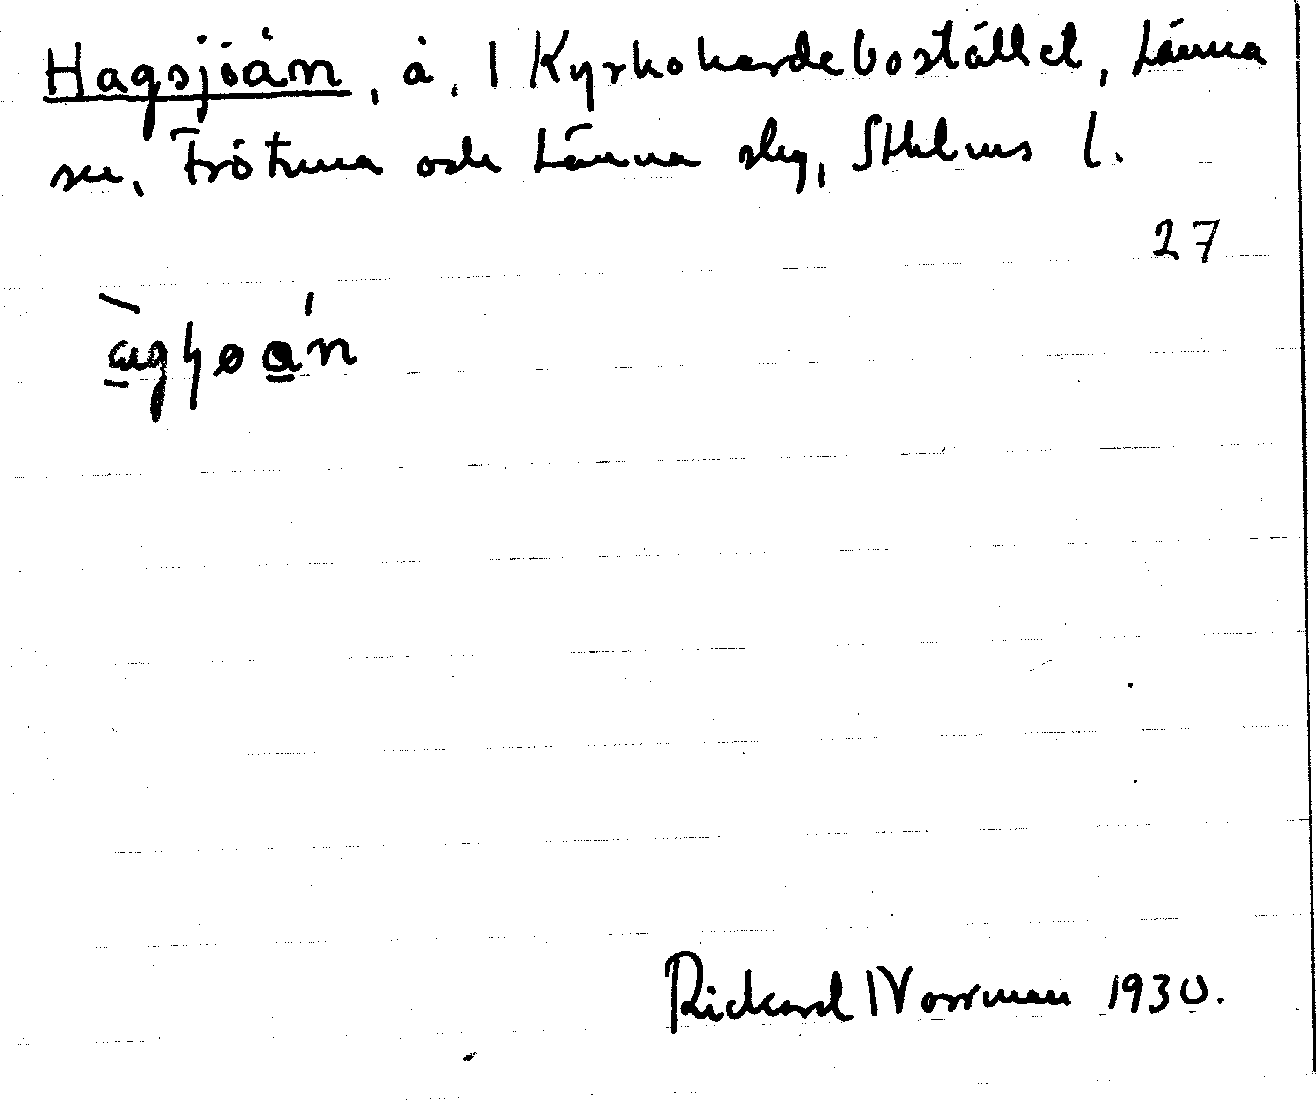 Hagsjöån, å, 1 Kyrkoherdebostället, Länna
sn, Frötuna och Länna skg, Sthlms l.
27
Rickard Norrman 1930.